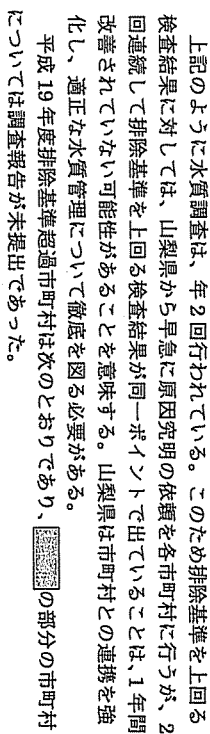 上記のように水質調査は、年2回行われている。このため排除基準を上回る
検査結果に対しては、山梨県から早急に原因究明の依頼を各市町村に行うが、2
回連続して排除基準を上回る検査結果が同一ポイントで出ていることは、1年間
改善されていない可能性があることを意味する。山梨県は市町村との連携を強
化し、適正な水質管理について徹底を図る必要がある。
平成19年度排除基準超過市町村は次のとおりであり、の部分の市町村
については調査報告が未提出であった。